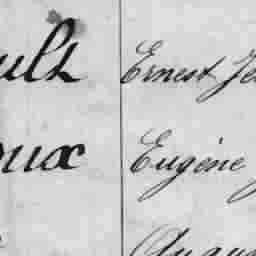 ult Ernest Je
oux Eugène J
Augu